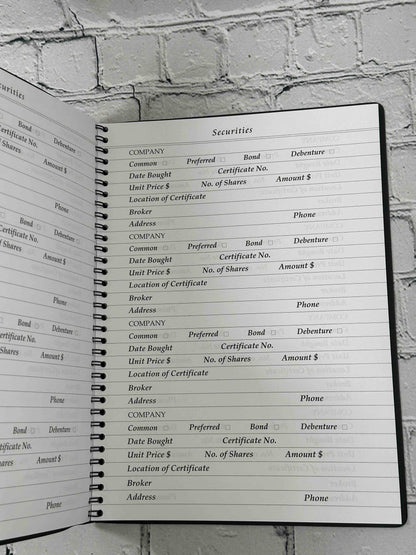 Securities
COMPANY
Common □ Preferred □ Bond □ Debenture □
Date Bought Certificate No.
Unit Price $ No. of Shares Amount $
Location of Certificate
Broker Phone
Address
COMPANY
Common □ Preferred □ Bond □ Debenture □
Date Bought Certificate No.
Unit Price $ No. of Shares Amount $
Location of Certificate
Broker
Address Phone
COMPANY
Common □ Preferred □ Bond □ Debenture □
Date Bought Certificate No.
Unit Price $ No. of Shares Amount $
Location of Certificate
Broker
Address Phone
COMPANY
Common □ Preferred □ Bond □ Debenture □
Date Bought Certificate No.
Unit Price $ No. of Shares Amount $
Location of Certificate
Broker
Address Phone
Bond □ Debenture
No.
Shares Amount $
Phone
Bond □ Debenture □
Certificate No.
Shares Amount $
Phone
Bond □ Debenture □
No.
Shares Amount $
Phone
Bond □ Debenture □
No.
Amount $
Phone